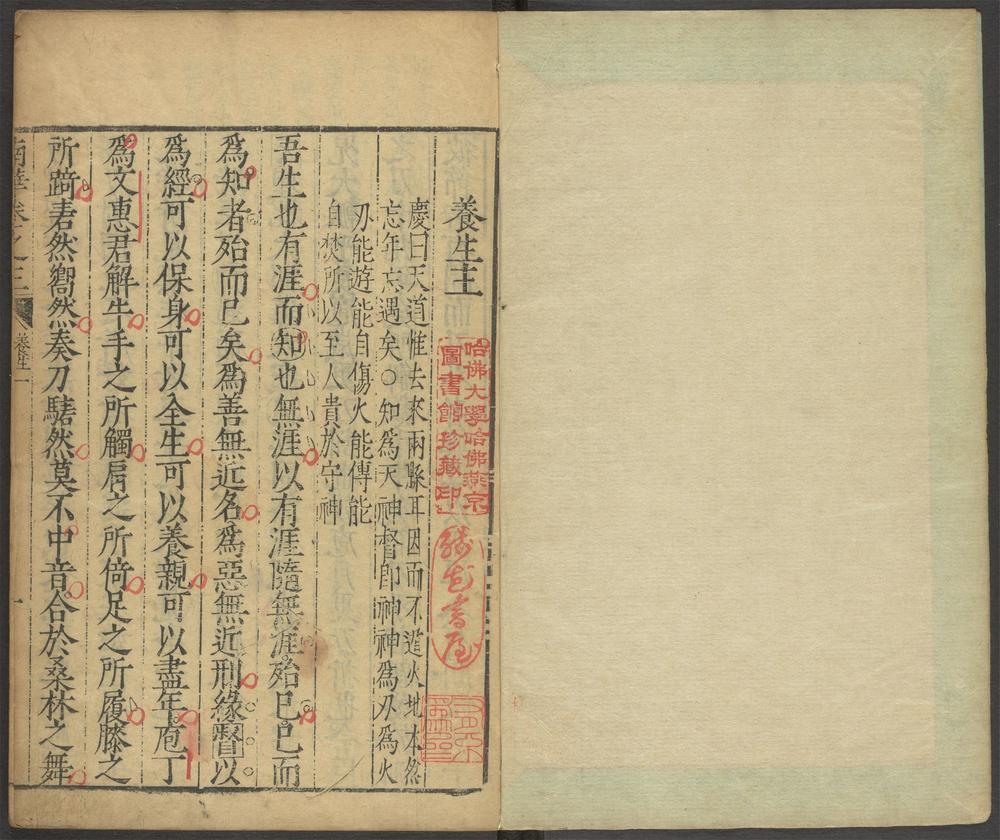 養生主
慶曰天道惟去來兩縣耳因而不道火地本然
忘年忘遇矣○知爲天神督卽神神爲刃爲火
刃能遊能自傷火能傳能
自焚所以至人貴於守神
吾生也有涯而知也無涯以有涯隨無涯殆已已而
爲知者殆而已矣爲善無近名爲惡無近刑緣督以
爲經可以保身可以全生可以養親可以盡年庖丁
爲文惠君解牛手之所觸肩之所倚足之所履膝之
所踦砉然嚮然奏刀騞然莫不中音合於桑林之舞
南華卷之三
養生
一
哈佛大學哈佛燕京
圖書館珍藏印
書屋